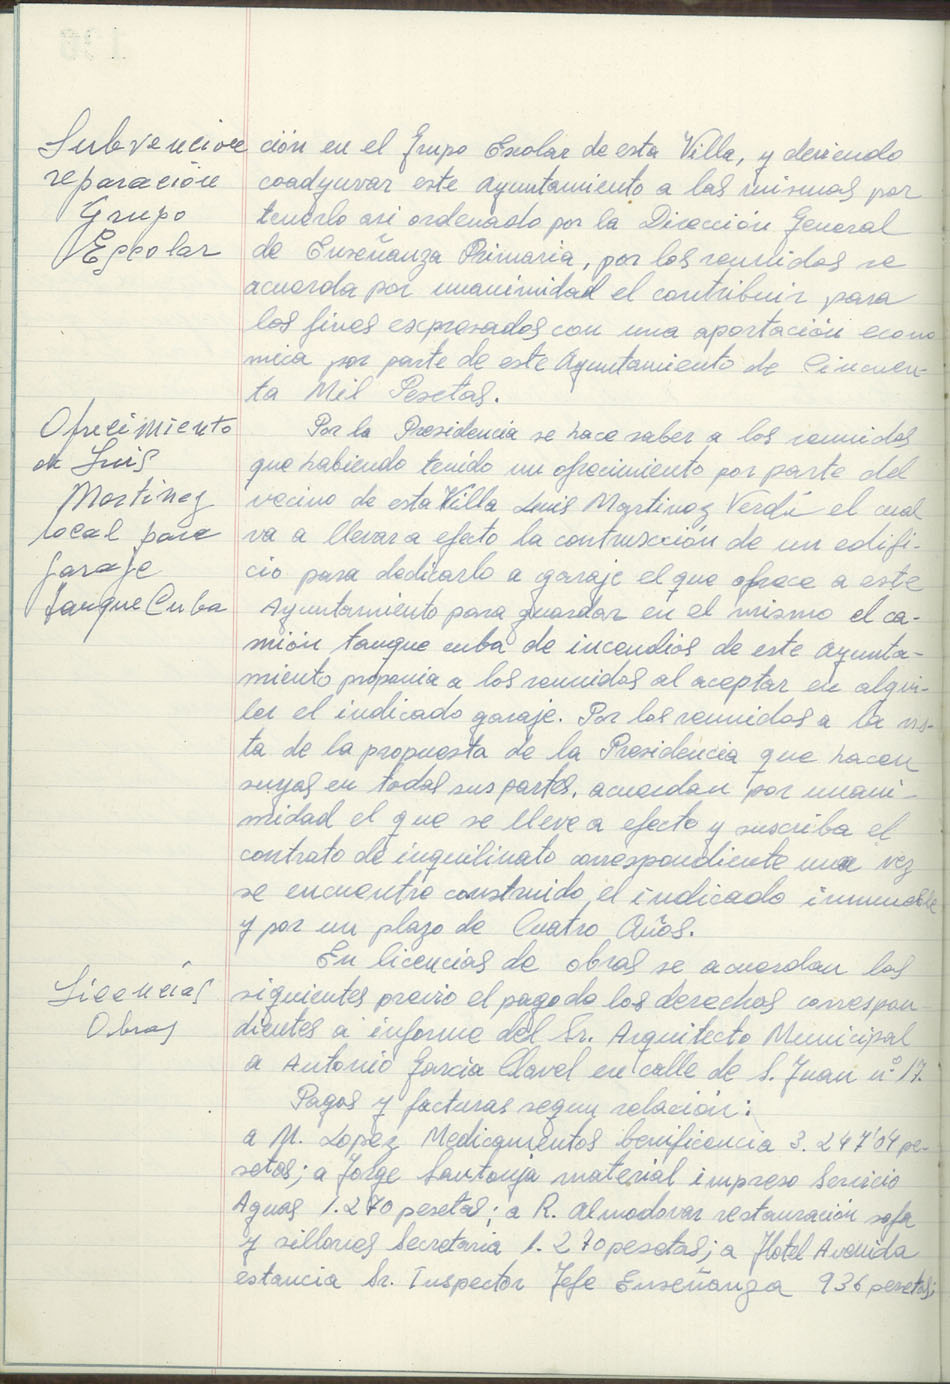 Subvencion
reparación
Grupo
Escolar
ción en el Grupo Escolar de esta Villa, y deviendo
coadyuvar este Ayuntamiento a las mismas por
tenerlo asi ordenado por la Dirección General
de Enseñanza Primaria, por los reunidos se
acuerda por unanimidad el contribuir para
los fines expresados con una aportación econo
mica por parte de este Ayuntamiento de Cincuen-
ta Mil Pesetas.
Ofrecimiento
de Luis
Martinez
local para
garaje
tanque Cuba
Por la Presidencia se hace saber a los reunidos
que habiendo tenido un ofrecimiento por parte del
vecino de esta Villa Luis Martinez Verdú el cual
va a llevar a efecto la contruscción de un edifi-
cio para dedicarlo a garaje el que ofrece a este
Ayuntamiento para guardar en el mismo el ca-
mión tanque cuba de incendios de este Ayunta-
miento proponia a los reunidos al aceptar en alqui-
ler el indicado garaje. Por los reunidos a la vis-
ta de la propuesta de la Presidencia que hacen
suyas en todas sus partes, acuerdan por unani-
midad el que se lleve a efecto y suscriba el
contrato de inquilinato correspondiente una vez
se encuentre construido el indicado inmueble
y por un plazo de Cuatro Años.
Licencias
Obras
En licencias de obras se acuerdan las
siguientes previo el pago de los derechos correspon
dientes a informe del Sr. Arquitecto Municipal
a Antonio Garcia Clavel en calle de S. Juan nº 17.
Pagos y facturas segun relación:
a M. Lopez Medicamentos benificencia 3.247'04 pe-
setas; a Jorge Santonja material impreso Servicio
Aguas 1.270 pesetas; a R. Almodovar restauración sofa
y sillones Secretaria 1.270 pesetas; a Hotel Avenida
estancia Sr. Inspector Jefe Enseñanza 936 pesetas;